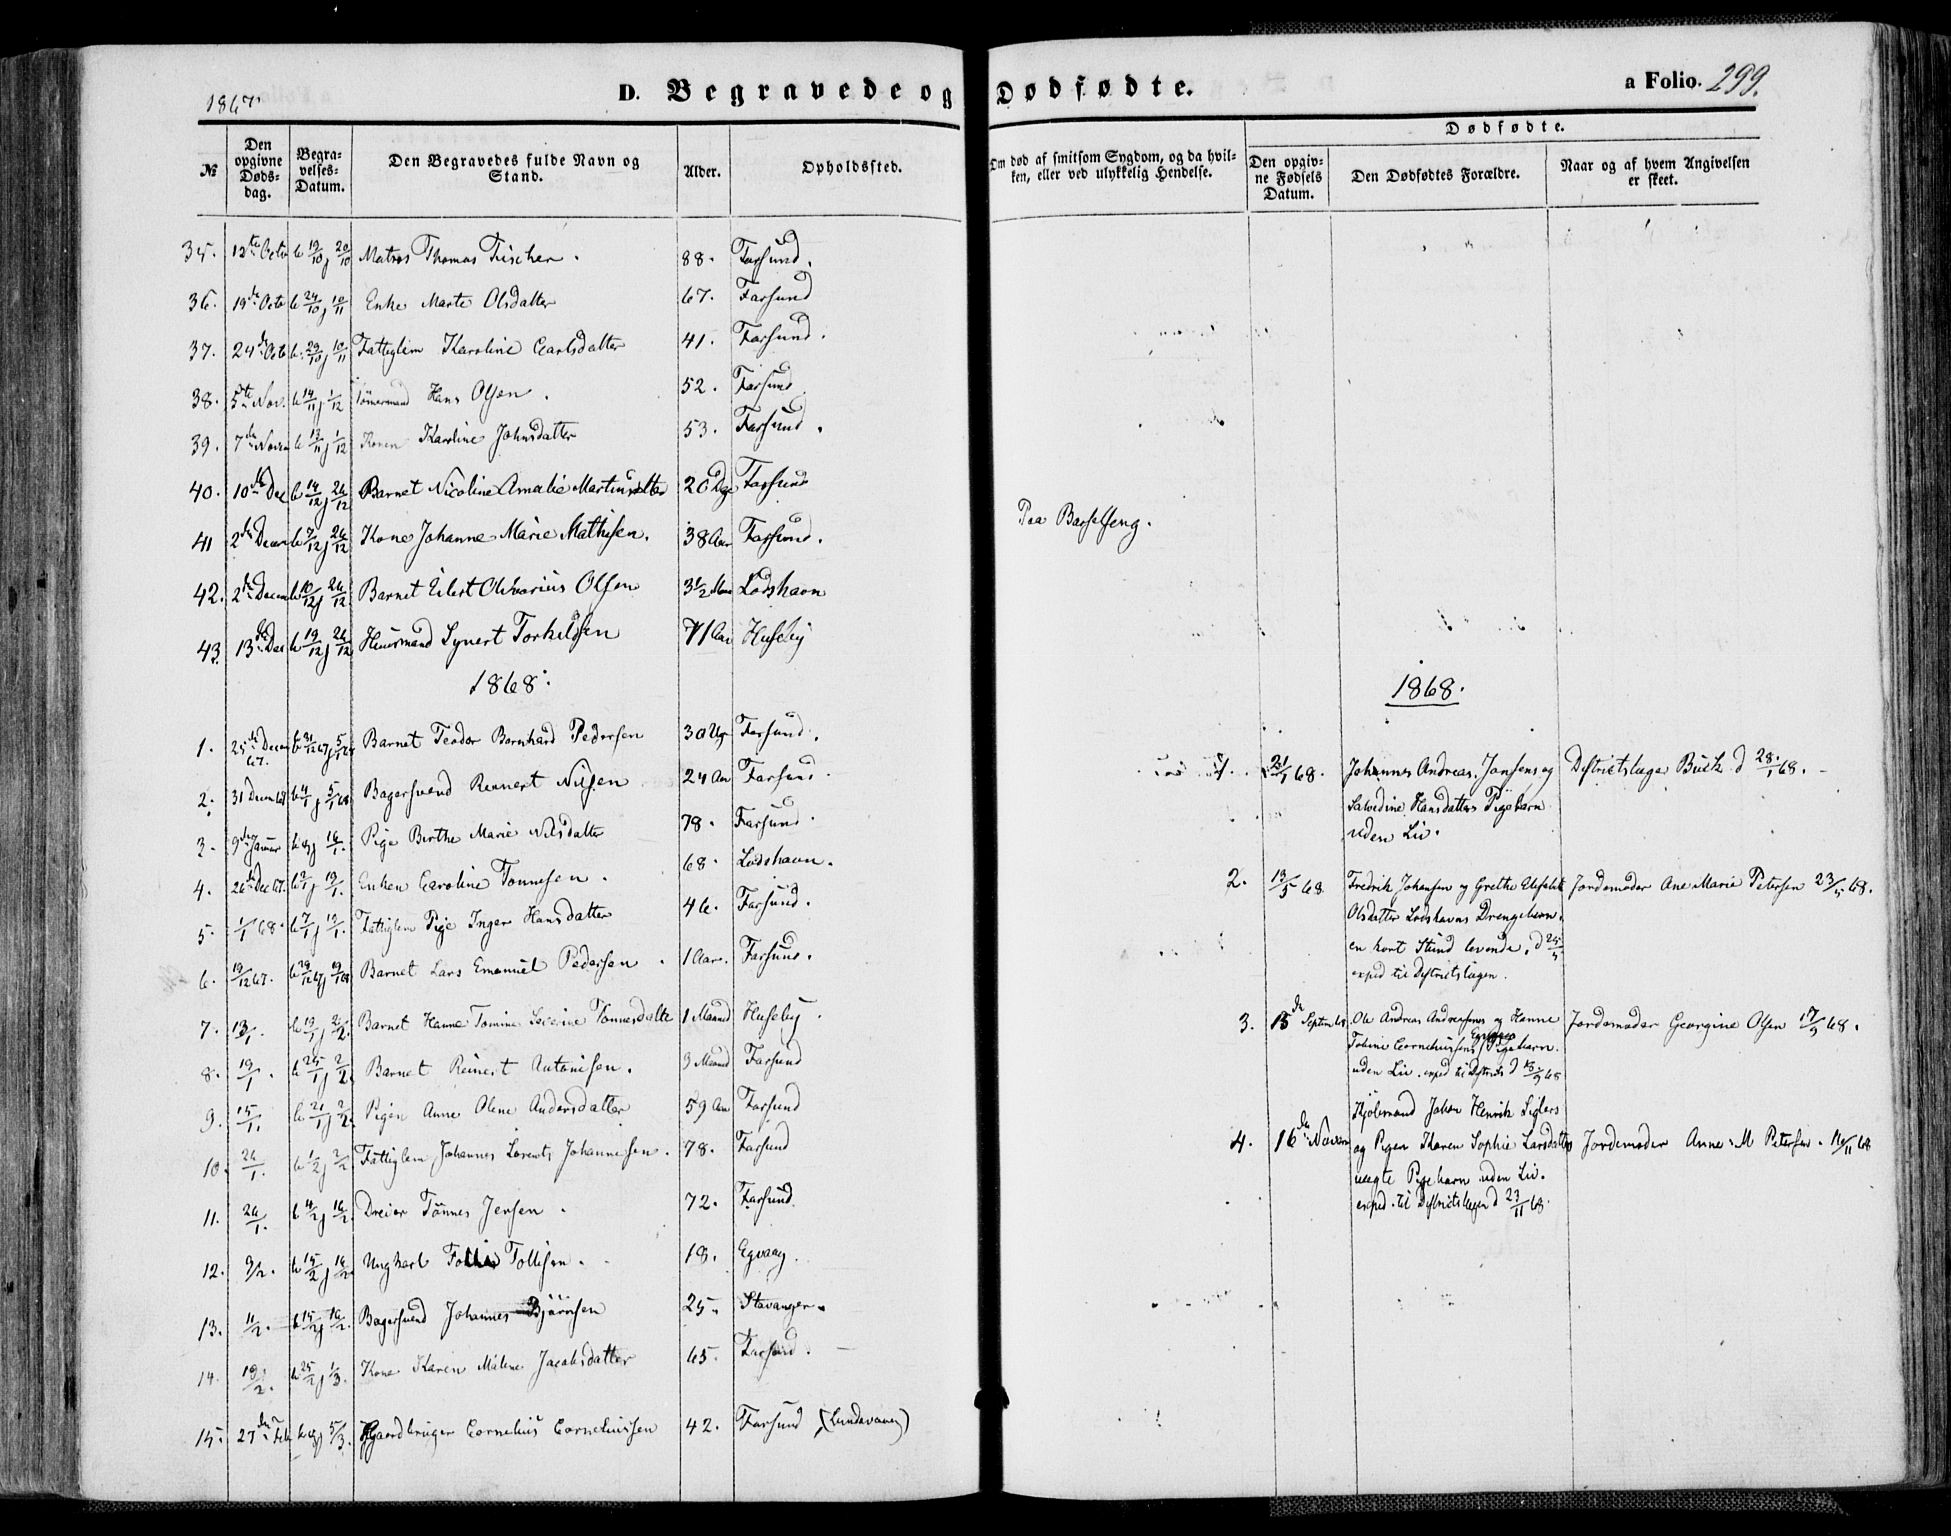 1867
D. Begravede og Dødfødte.
a Folio. 299.
№
Den opgivne Døds-dag.
Begra-velses-Datum.
Den Begravedes fulde Navn og Stand.
Alder.
Opholdssted.
Om død af smitsom Sygdom, og da hvil-ken, eller ved ulykkelig Hendelse.
Dødfødte.
Den opgiv-ne Fødsels Datum.
Den Dødfødtes Forældre.
Naar og af hvem Angivelsen er skeet.
35. 12te Octo b 19/10 j 20/10 Matros Thomas Fischer. 88. Farsund.
36. 19de Octo b 24/10 j 10/11 Enke Marte Olsdatter 67. Farsund
37. 24de Octo b. 29/10 j 10/11 Fattiglem Karoline Carlsdatter 41. Farsund.
38. 5te Nov. b 14/11 j 1/12 Tømermand Hans Olsen. 52. Farsund
39. 7de Novem b 13/11 j 1/12 Konen Karoline Johnsdatter 53. Farsund.
40. 10de Dec b 14/12 j 26/12 Barnet Nicoline Amalie Martinsdatter 20 Dge Farsund
41 2den Decem b 7/12 j 26/12 Kone Johanne Marie Mathisen. 38 Aar Farsund. Paa Barselseng.
42. 2den Decem b 10/12 j 26/12 Barnet Eilert Olivarius Olsen 3 1/2 Mnd Lodshavn
43. 13de Dec b 19/12 j 26/12 Huusmand Synert Torkildsen 71 Aar Huseby
1868.
1. 25de Decem 67. b 31/12 67 j 5/1 68 Barnet Teodor Bernhard Pedersen 3 Uger Farsund.
2. 31 Decem 67 b 4/1 j 5/1 68 Bagersvend Reinert Nilsen 24 Aar Farsund.
3. 9de Januar b og j 16/1. Pige Berthe Marie Nilsdatter 78. Farsund.
4. 26de Dec 67. b 2/1 j 19/1. Enken Caroline Tønnesen. 68. Lodshavn.
5. 1/1 68. b 7/1 j 19/1. Fattiglem Pige Inger Hansdatter 46. Farsund.
6. 19/12 67. b 29/12 67 j 19/1 68 Barnet Lars Emanuel Pedersen. 1 Aar. Farsund.
7. 13/1. b 19/1 j 2/2. Barnet Hanne Tomine Severine Tønnesdatter 1 Maaned Huseby.
8. 19/1. b 25/1 j 2/2. Barnet Reinert Antonisen. 3 Maaned Farsund
9. 15/1. b 21/1 j 2/2. Pigen Anne Olene Andersdatter 59 Aar Farsund
10. 26/1. b 1/2 j 2/2 Fattiglem Johannes Lorents Johannesen. 78. Farsund
11. 26/1. b 4/2 j 16/2. Dreier Tønnes Jensen. 72. Farsund.
12. 9/2. b 15/2 j 16/2. Ungkarl Tollis Tollisen. 18. Egvaag.
13. 11/2. b 15/2 j 16/2. Bagersvend Johannes Bjørnsen 25. Stavanger.
14. 19/2. b 25/2 j 1/3. Kone Karen Malene Jacobsdatter 65. Farsund.
15. 27de Feb b og j 5/3. Gaardbruger Cornelius Corneliussen 42. Farsund (Lundevaagen)
1868.
1. 21/1 68. Johannes Andreas Jansens og Districtslæge Buck d 28/1 68.
Salvedine Hansdatters Pigebarn
uden Liv.
2. 19/5 68 Fredrik Johansen og Grethe Elisabeth Jordemoder Ane Marie Petersen 23/5 68.
Olsdatter Lodshavns Drengebarn.
en kort Stund levende. d 25/5
exped til Districtslægen.
3. 15de September Ole Andreas Andreasens og Hanne Jordemoder Georgine Olsen 17/9 68.
Tobine Corneliussens Egvaag Pigebarn.
uden Liv. exped til Districtsl d 18/9 68
4. 16de Novem Kjøbmand Johan Henrik Siglers
og Pigen Karen Sophie Larsdatters Jordemoder Anne M Petersen. 16/11 68
uægte Pigebarn uden Liv.
exped. til Districtslægen d 23/11 68.